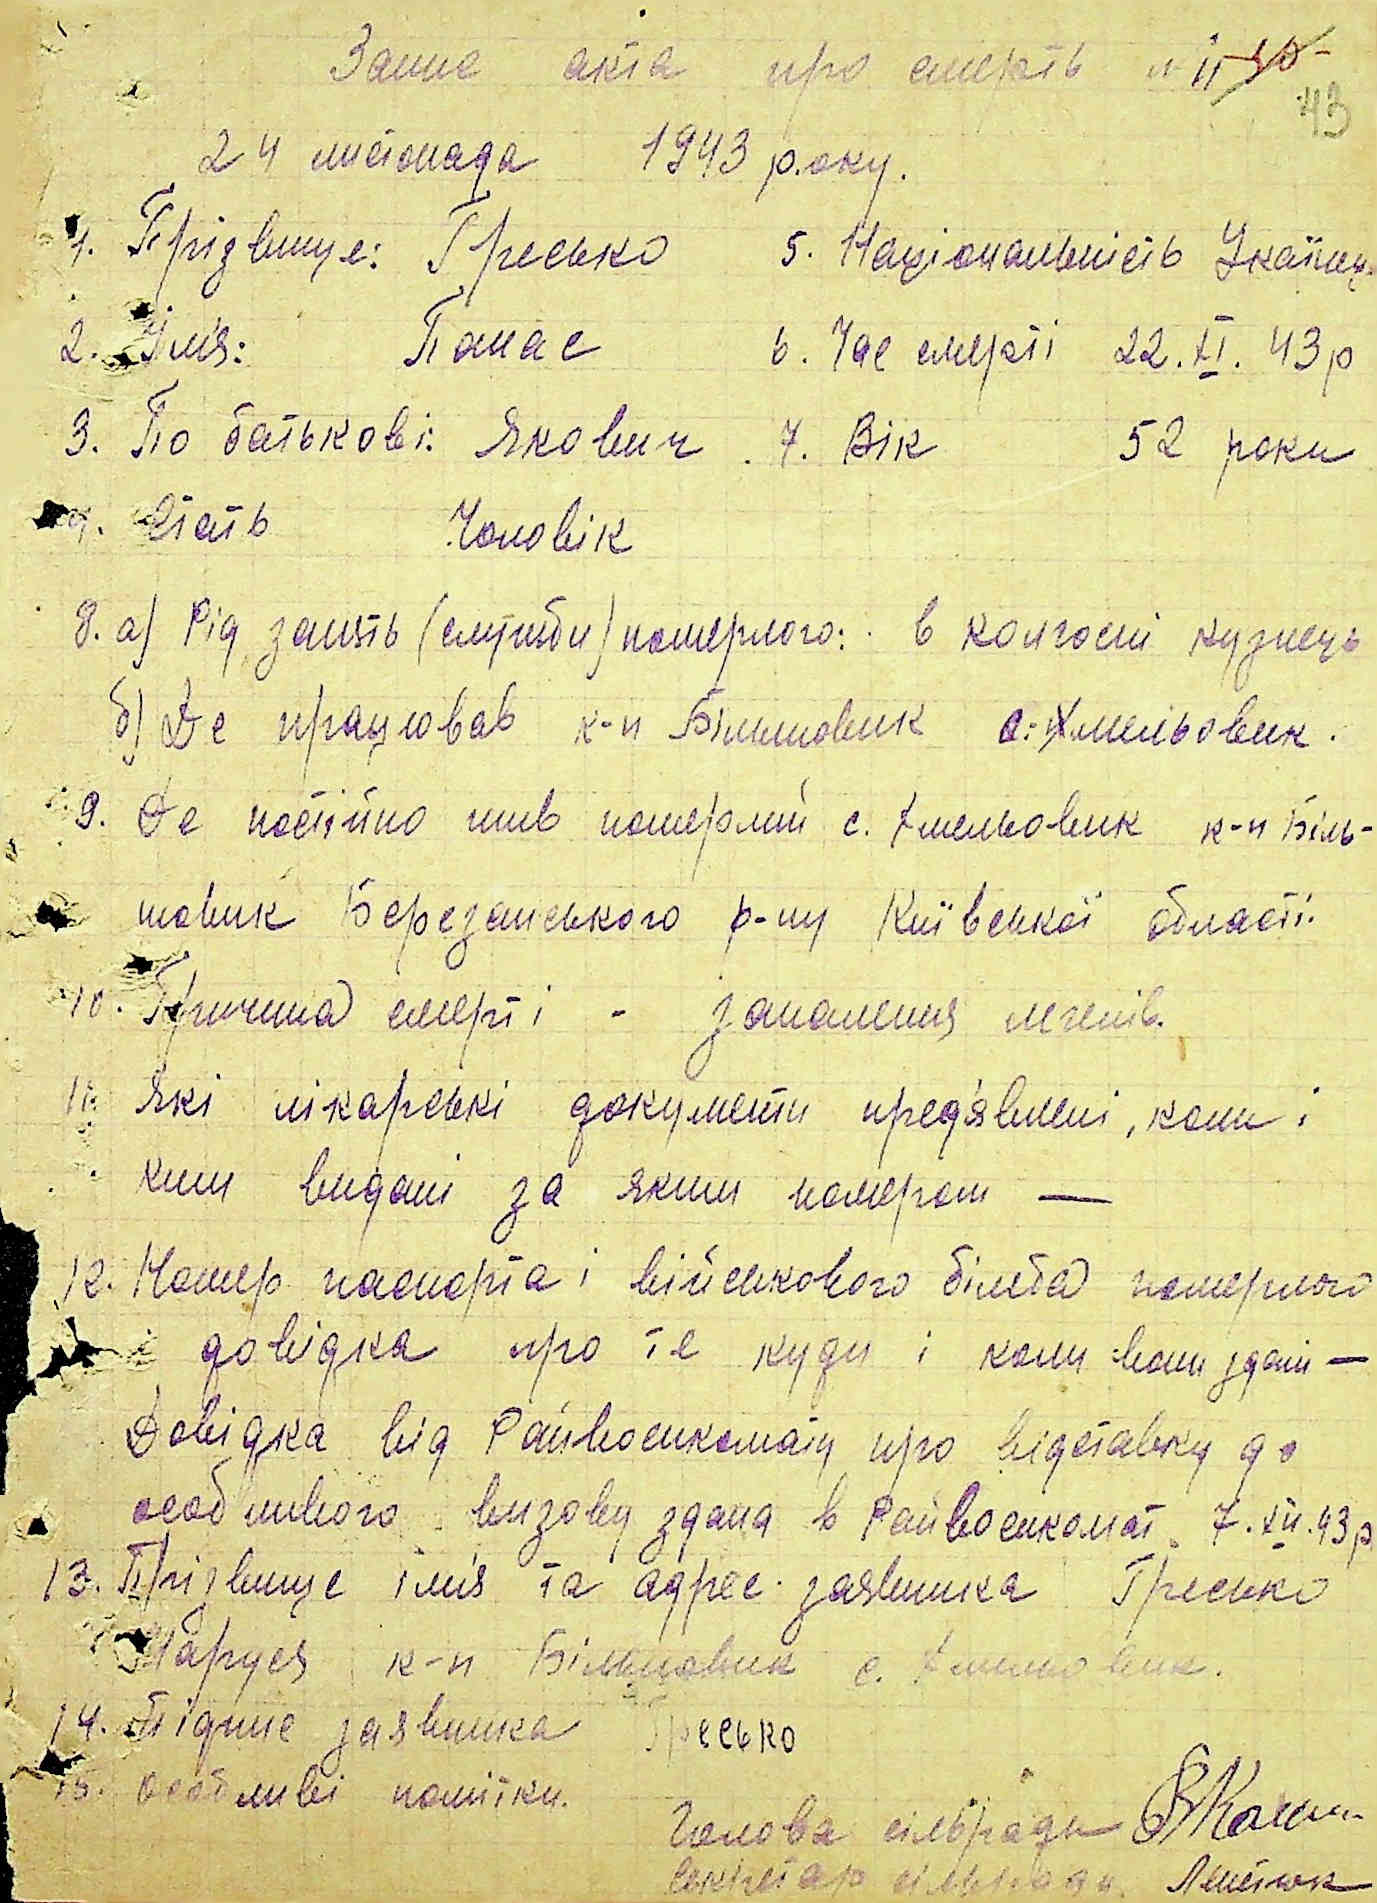 Запис акта про смерть № 11
43
24 листопада 1943 року.
1. Прізвище: Гресько 5. Національність Украінець
2. Імя: Панас 6. Час смерті 22.XI.43р
3. По батькові: Якович. 7. Вік 52 роки
4. Стать Чоловік
8. а) Рід занять (служби) померлого: в колгоспі кузнець
б) Де працював к-п Більшовик с. Хмельовик.
9. Де постійно жив померлий с. Хмельовик к-п Біль-
шовик Березанського р-ну Київської області.
10. Причина смерті - запалення легенів.
11. Які лікарські документи предявлені, коли і
ким видані за яким номером —
12. Номер паспорта і військового білета померлого
і довідка про те куди і коли вони здані —
Довідка від Райвоенкомату про відставку до
особливого визову здана в Райвоенкомат 7.XII.43р
13. Прізвище імя та адрес заявника Гресько
Маруся к-п Більшовик с. Хмельовик.
14. Підпис заявника Гресько
15. Особливі помітки.
Голова сільради
Секретар сільради